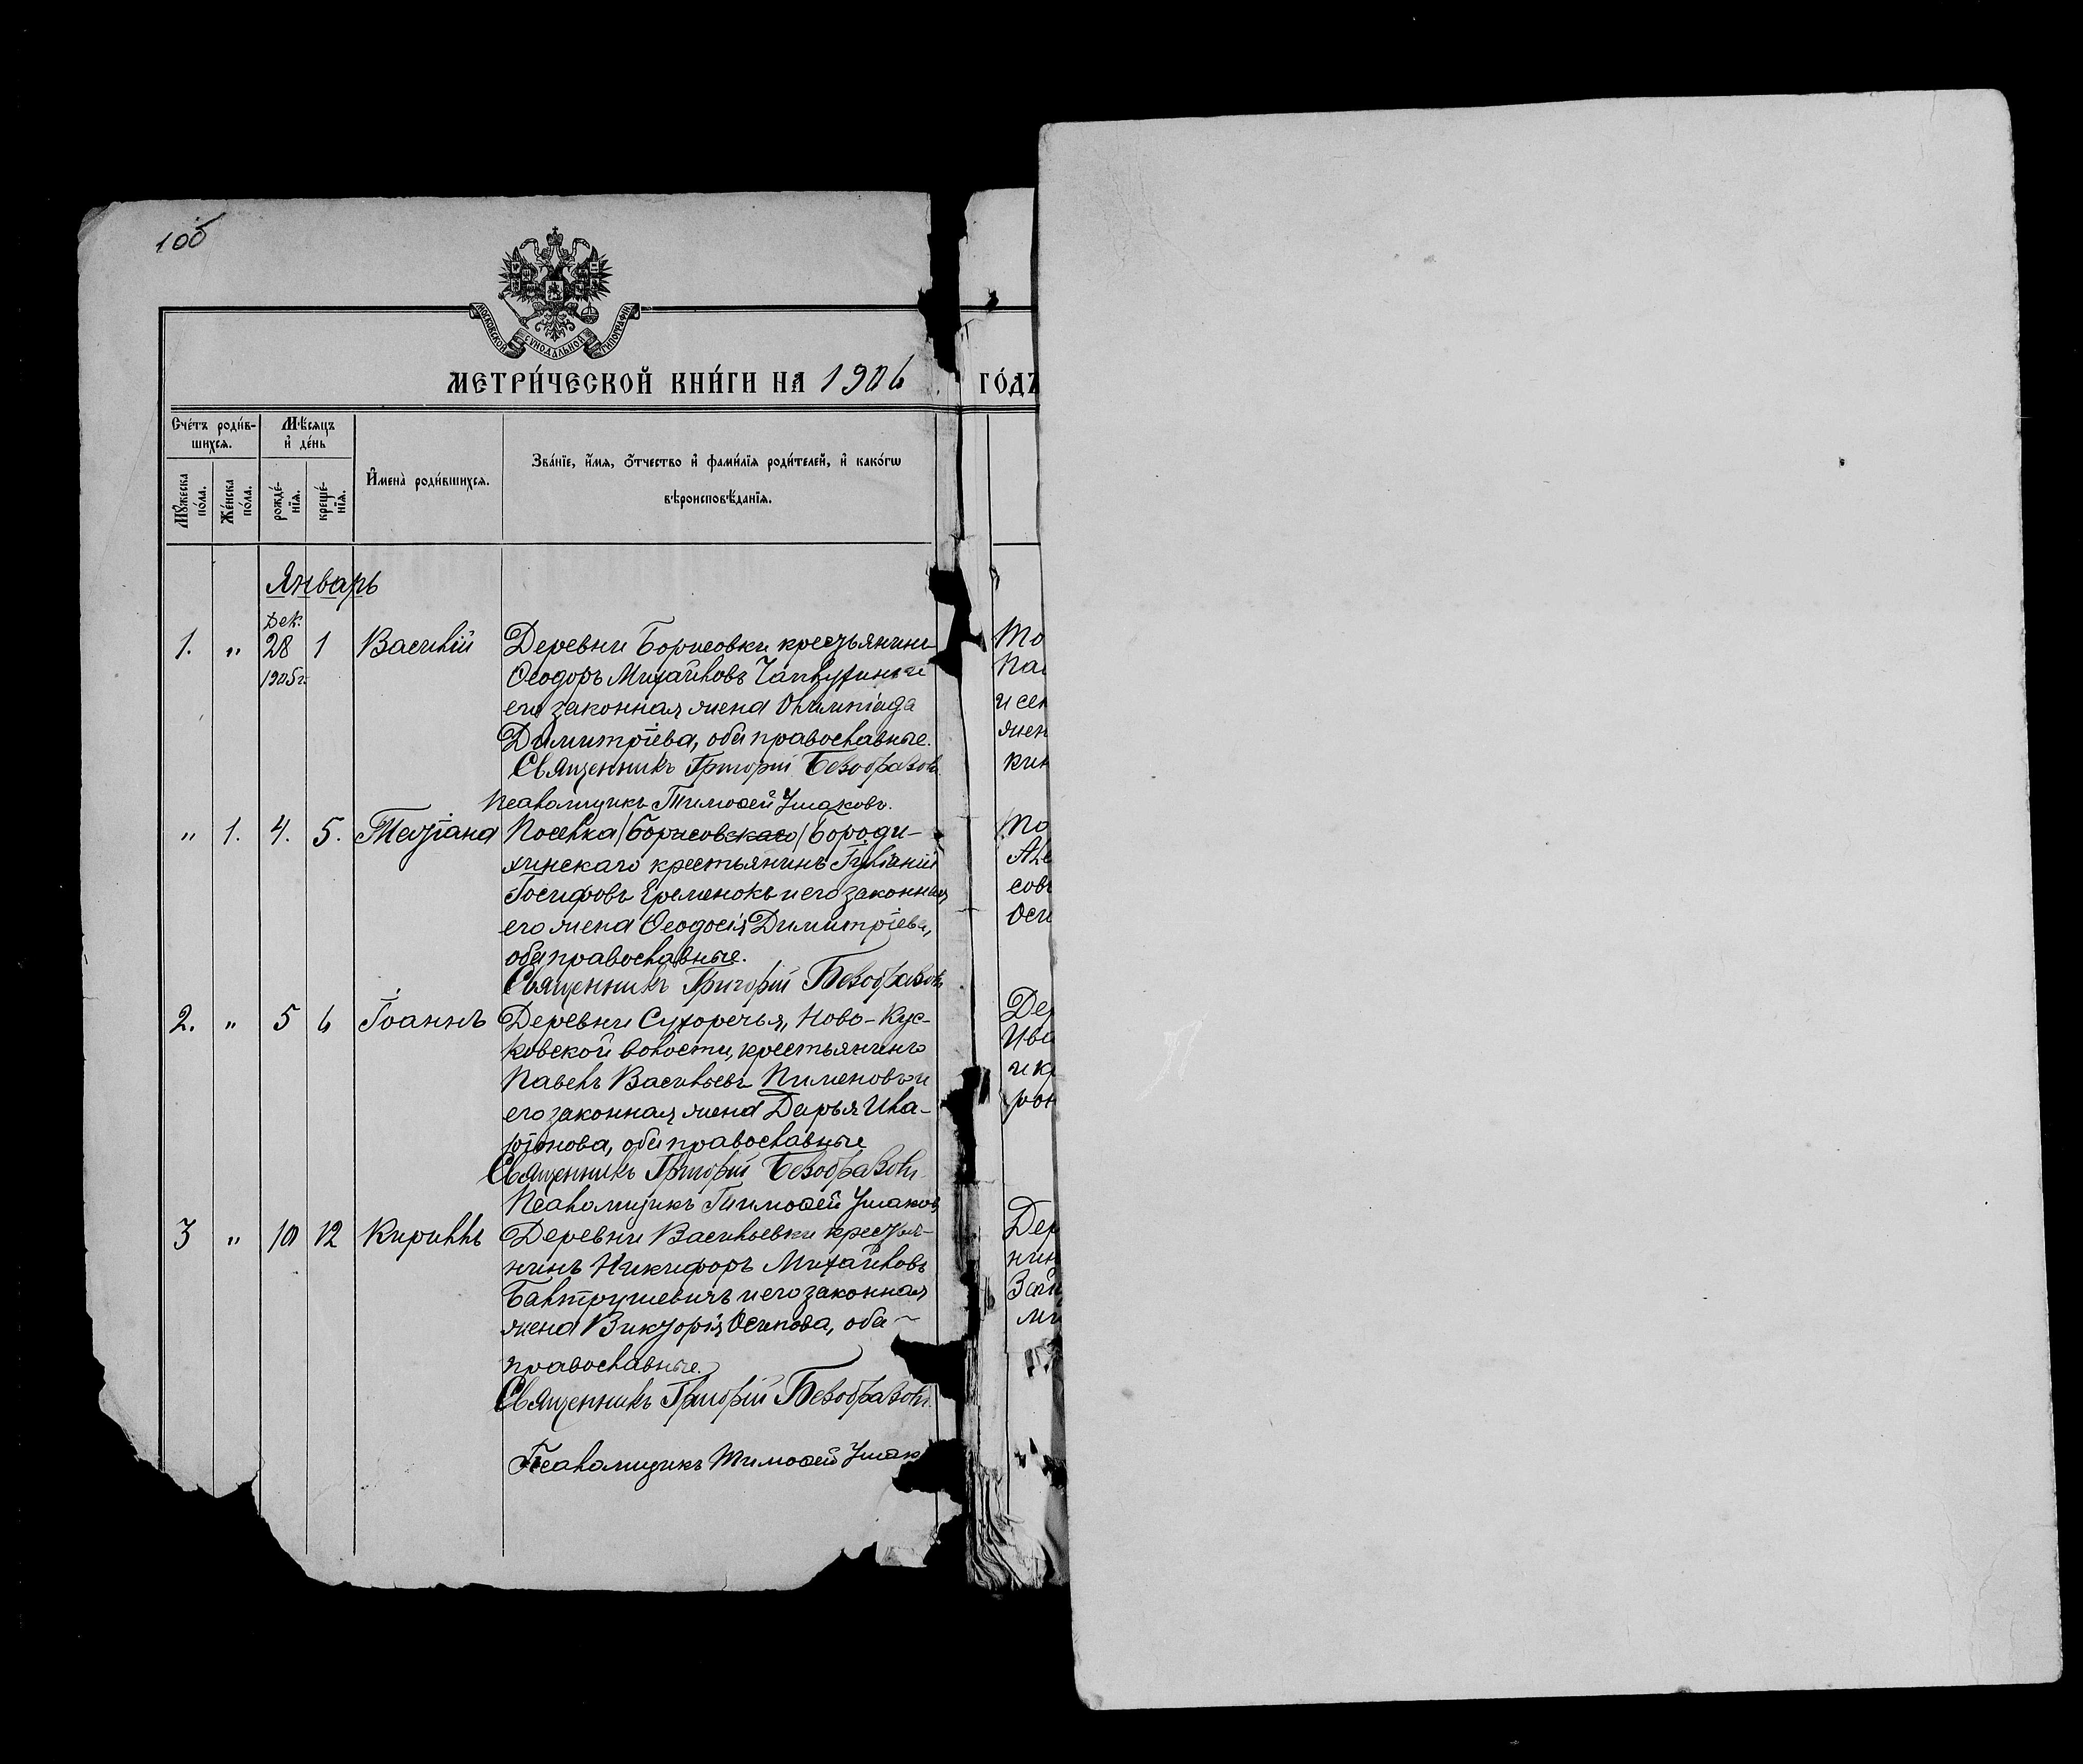 100
МОСКОВСКОЙ СѴНОДАЛЬНОЙ ТИПОГРАФІИ
МЕТРИ́ЧЕСКОЙ КНИ́ГИ НА 1906 ГО́ДЪ
Сче́тъ роди́вшихся.
Мѣ́сяцъ и҆ де́нь
Мꙋ́жеска по́ла.
Же́нска по́ла.
рожде́нїѧ.
креще́нїѧ.
И҆мена̀ роди́вшихсѧ.
Зва́нїе, и҆́мѧ, ѻ҆́тчество и҆ фами́лїѧ роди́телей, и҆ како́гѡ
вѣроисповѣ́данїѧ.
Январь
Дек.
1. " 28 1 Василій Деревни Борисовки крестьянинъ
1905г. Ѳеодоръ Михайловъ и
его законная жена Олимпіада
Димитріева, оба православные.
Священникъ Григорій Безобразовъ
Псаломщикъ Тимоѳей Ушаковъ.
" 1. 4. 5. Татіана Поселка /Борисовскаго/ Бороди-
хинскаго крестьянинъ Іуліаній
Іосифовъ Еременокъ и его законная
его жена Ѳеодосія Димитріева,
оба православные.
Священникъ Григорій Безобразовъ
2. " 5 6 Іоаннъ Деревни Сухоречья, Ново-Кус-
ковской волости, крестьянинъ
Павелъ Васильевъ Пименовъ и
его законная жена Дарья Ила-
ріонова, оба православные
Священникъ Григорій Безобразовъ
Псаломщикъ Тимоѳей Ушаковъ
3 " 10 12 Кириллъ Деревни Васильевки крестья-
нинъ Никифоръ Михайловъ
Балтрушевичъ и его законная
жена Викторія Осипова, оба
православные.
Священникъ Григорій Безобразовъ.
Псаломщикъ Тимоѳей Ушак
То
Пав
и сел
жен
кин
По
Але
сов
Оси
Дер
Ива
и кр
рон
Дер
нин
Зай
ми